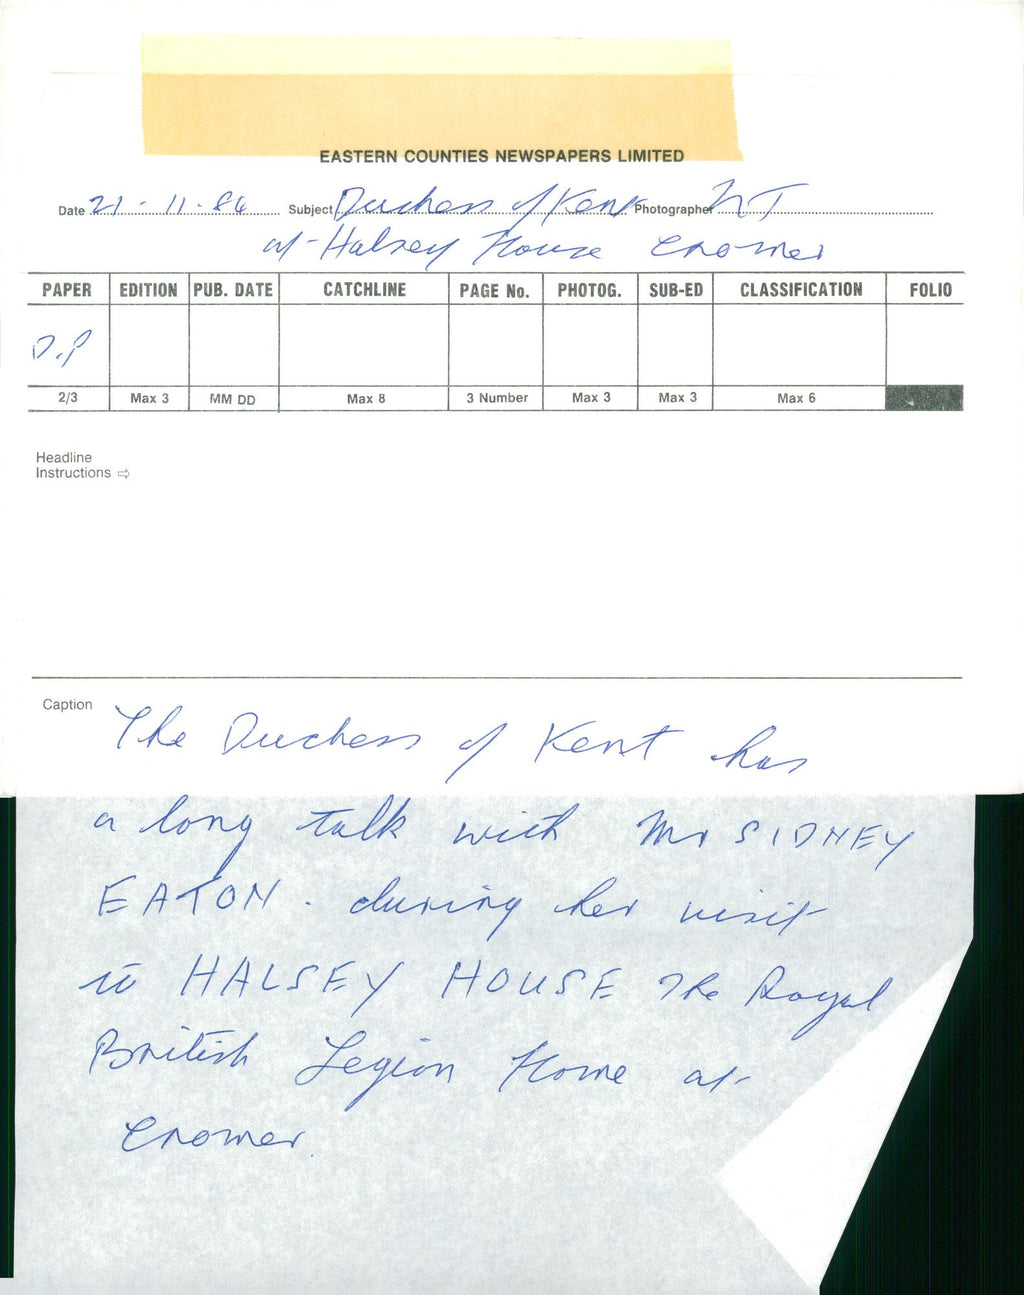 EASTERN COUNTIES NEWSPAPERS LIMITED
Date 21.11.86 Subject Duchess of Kent Photographer NT
at Halsey House Cromer
PAPER EDITION PUB. DATE CATCHLINE PAGE No. PHOTOG. SUB-ED CLASSIFICATION FOLIO
D.P
2/3 Max 3 MM DD Max 8 3 Number Max 3 Max 3 Max 6
Headline
Instructions ⇨
Caption The Duchess of Kent has
a long talk with Mr SIDNEY
EATON. during her visit
to HALSEY HOUSE The Royal
British Legion Home at
Cromer.